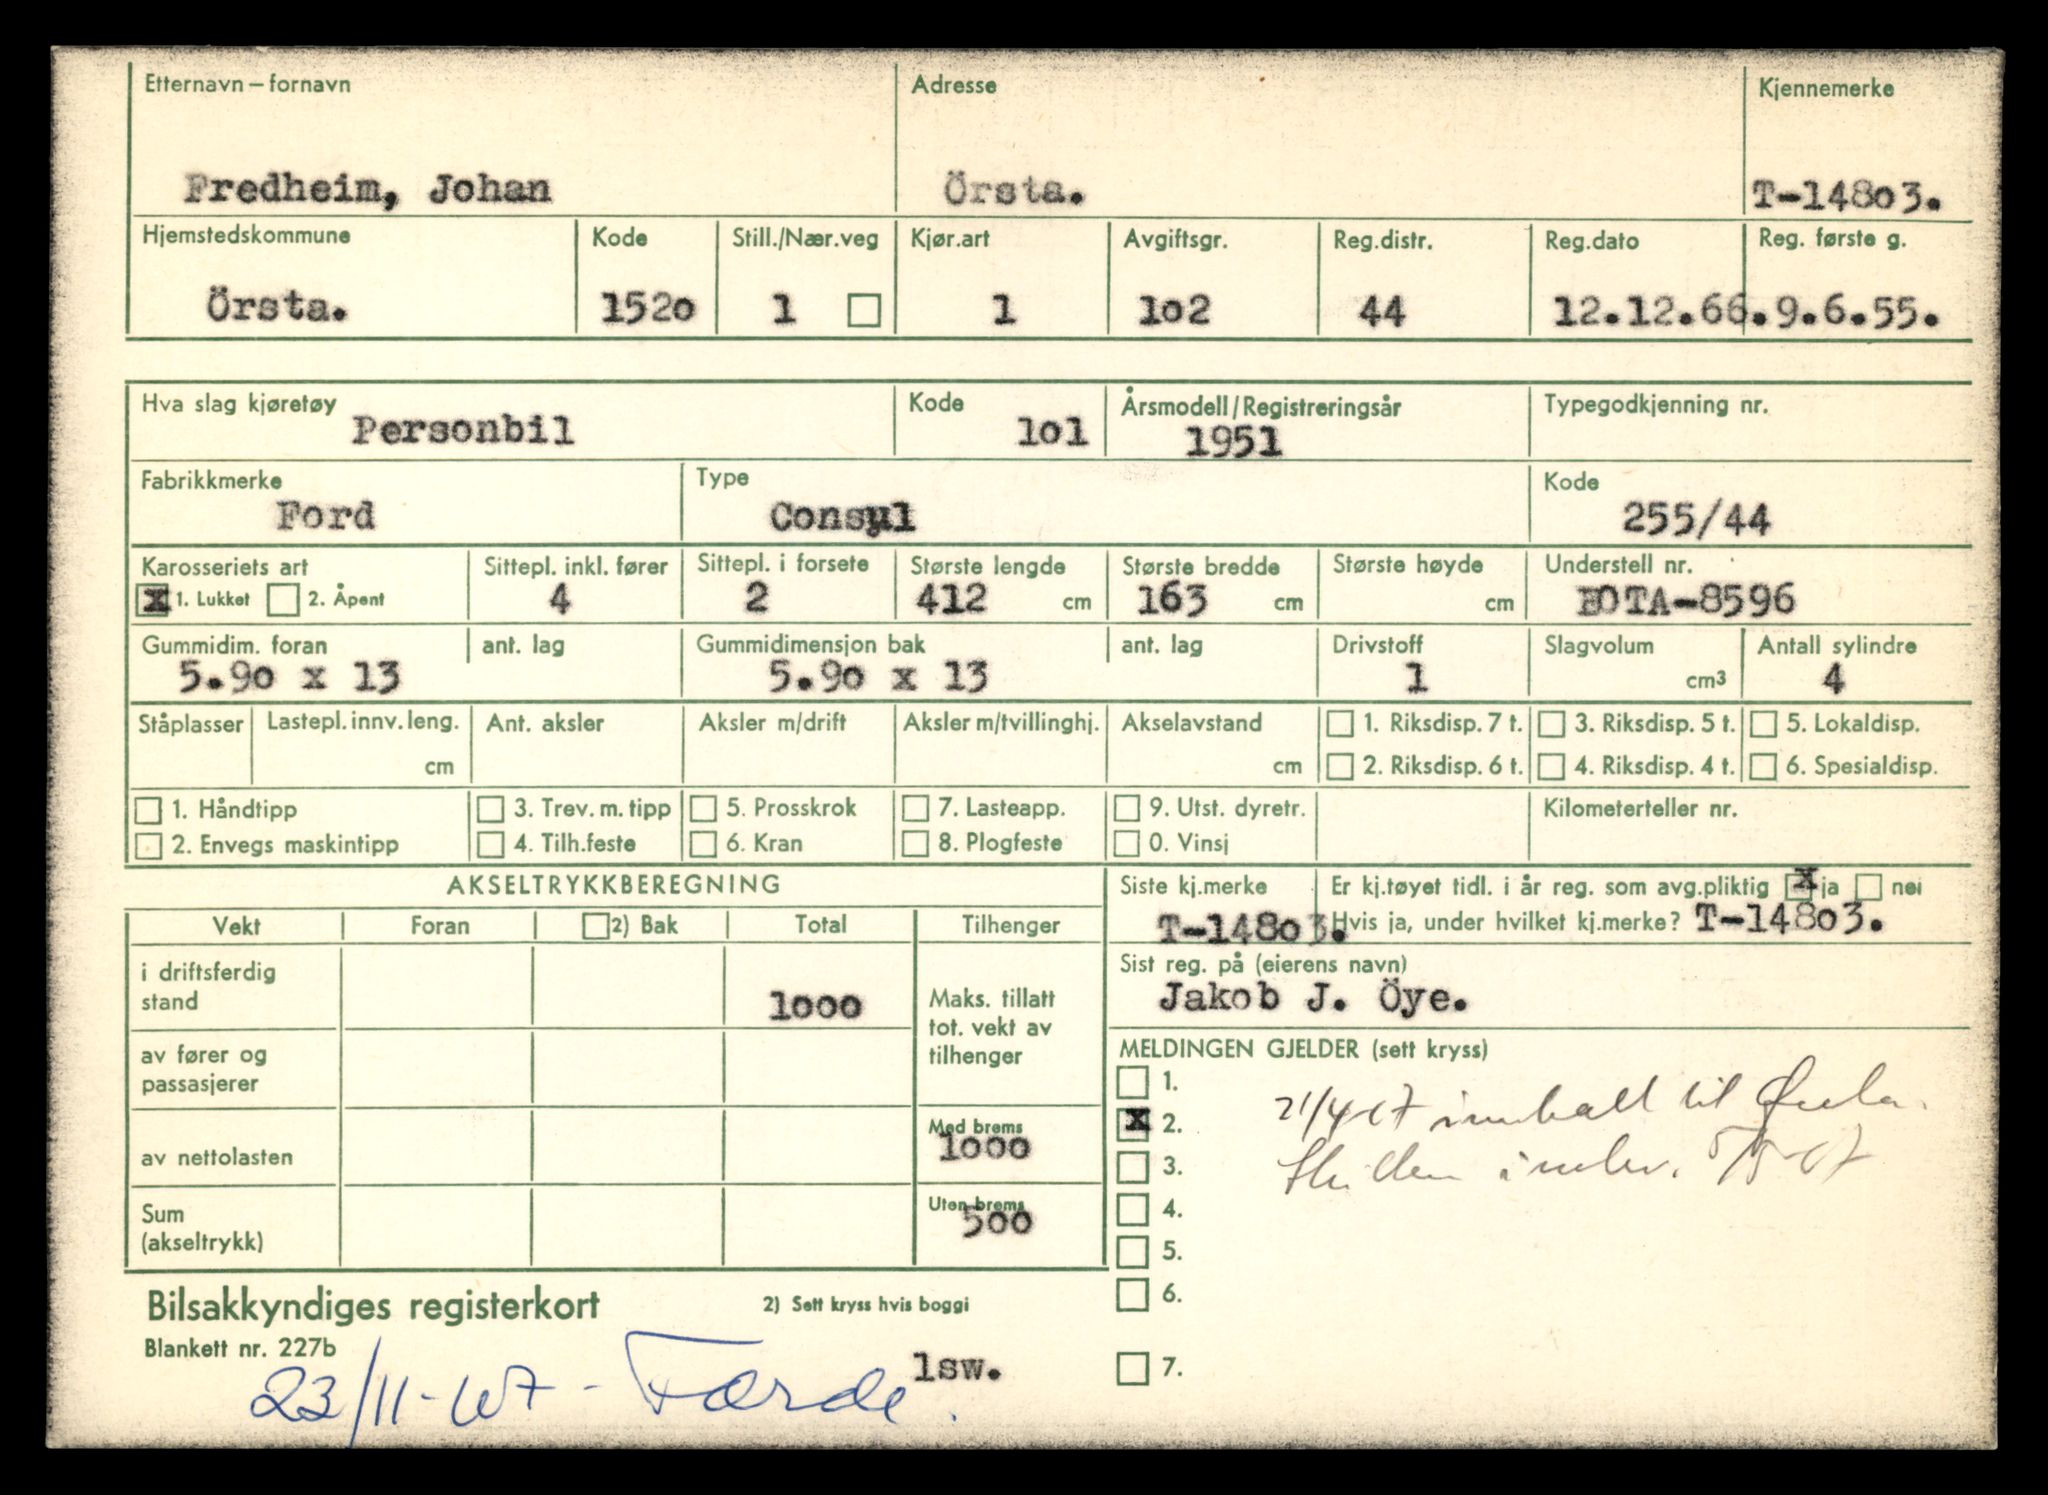 Etternavn – fornavn Adresse Kjennemerke
Fredheim, Johan Örsta. T-14803.
Hjemstedskommune Kode Still./Nær.veg Kjør.art Avgiftsgr. Reg.distr. Reg.dato Reg. første g.
Örsta. 1520 1 1 102 44 12.12.66. 9.6.55.
Hva slag kjøretøy Kode Årsmodell/Registreringsår Typegodkjenning nr.
Personbil 101 1951
Fabrikkmerke Type Kode
Ford Consul 255/44
Karosseriets art Sittepl. inkl. fører Sittepl. i forsete Største lengde Største bredde Største høyde Understell nr.
x 1. Lukket 2. Åpent 4 2 412 cm 163 cm cm EOTA-8596
Gummidim. foran ant. lag Gummidimensjon bak ant. lag Drivstoff Slagvolum Antall sylindre
5.90 x 13 5.90 x 13 1 cm3 4
Ståplasser Lastepl. innv. leng. Ant. aksler Aksler m/drift Aksler m/tvillinghj. Akselavstand 1. Riksdisp. 7 t. 3. Riksdisp. 5 t. 5. Lokaldisp.
cm cm 2. Riksdisp. 6 t. 4. Riksdisp. 4 t. 6. Spesialdisp.
1. Håndtipp 3. Trev. m. tipp 5. Prosskrok 7. Lasteapp. 9. Utst. dyretr. Kilometerteller nr.
2. Envegs maskintipp 4. Tilh.feste 6. Kran 8. Plogfeste 0. Vinsj
AKSELTRYKKBEREGNING Siste kj.merke Er kj.tøyet tidl. i år reg. som avg.pliktig x ja nei
T-14803. Hvis ja, under hvilket kj.merke? T-14803.
Vekt Foran 2) Bak Total Tilhenger
Sist reg. på (eierens navn)
Jakob J. Öye.
i driftsferdig stand 1000 Maks. tillatt
tot. vekt av
tilhenger
av fører og
passasjerer
MELDINGEN GJELDER (sett kryss)
1.
21/4-67 innkalt til
x 2.
3.
5/5-67
av nettolasten Med brems
1000
4.
Sum
(akseltrykk) Uten brems
500
5.
6.
Bilsakkyndiges registerkort 2) Sett kryss hvis boggi
Blankett nr. 227b
lsw. 7.
23/11-67 - Førde.